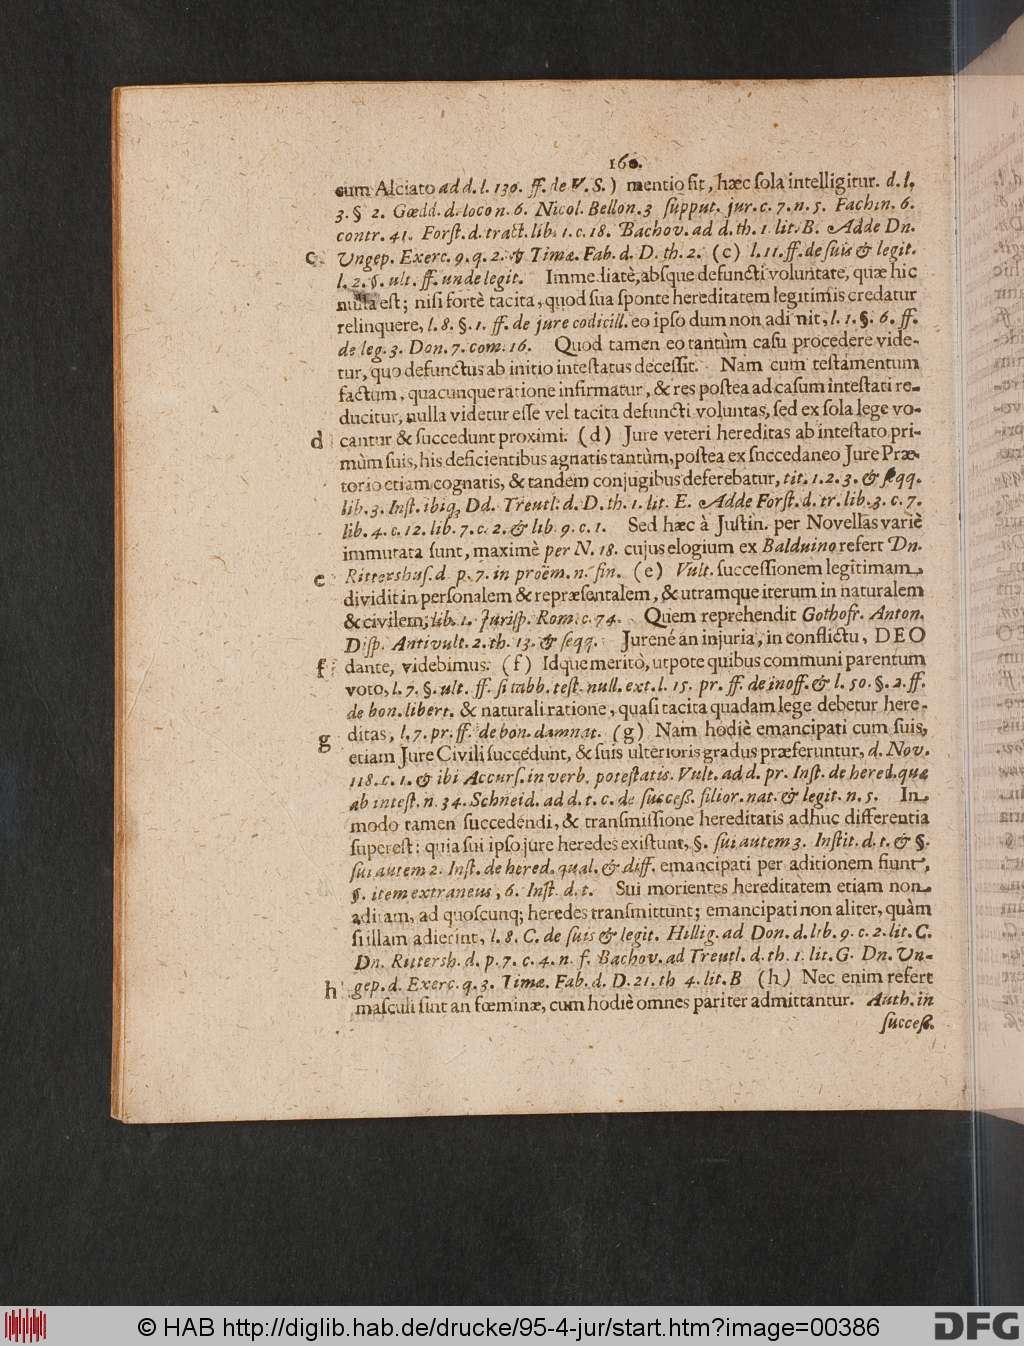 160.
cum Alciato ad d. l. 130. ff. de V. S.) mentio sit, hæc sola intelligitur. d. l.
3. § 2. Gœdd. d. loco n. 6. Nicol. Bellon. 3 supput. jur. c. 7. n. 5. Fachin. 6.
contr. 41. Forst. d. tract. lib. 1. c. 18. Bachov. ad d. th. 1. lit. B. Adde Dn.
c Ungep. Exerc. 9. q. 2. & Timæ. Fab. d. D. th. 2. (c) l. 11. ff. de suis & legit.
l. 2. §. ult. ff. unde legit. Immediatè, absque defuncti voluntate, quæ hic
nulla est; nisi fortè tacita, quod sua sponte hereditatem legitimis credatur
relinquere, l. 8. §. 1. ff. de jure codicill. eo ipso dum non adimit, l. 1. §. 6. ff.
de leg. 3. Don. 7. com. 16. Quod tamen eo tantùm casu procedere vide-
tur, quo defunctus ab initio intestatus decessit. Nam cum testamentum
factum, quacunque ratione infirmatur, & res postea ad casum intestati re-
ducitur, nulla videtur esse vel tacita defuncti voluntas, sed ex sola lege vo-
d cantur & succedunt proximi. (d) Jure veteri hereditas ab intestato pri-
mùm suis, his deficientibus agnatis tantùm, postea ex succedaneo Jure Præ-
torio etiam cognatis, & tandem conjugibus deferebatur, tit. 1. 2. 3. & seqq.
lib. 3. Inst. ibiq; Dd. Treutl. d. D. th. 1. lit. E. Adde Forst. d. tr. lib. 3. c. 7.
lib. 4. c. 12. lib. 7. c. 2. & lib. 9. c. 1. Sed hæc à Justin. per Novellas variè
immutata sunt, maximè per N. 18. cujus elogium ex Balduino refert Dn.
e Rittershus. d. p. 7. in proëm. n. fin. (e) Vult. successionem legitimam
dividit in personalem & repræsentalem, & utramque iterum in naturalem
& civilem, lib. 1. Jurisp. Rom. c. 74. Quem reprehendit Gothofr. Anton.
Disp. Antivult. 2. th. 13. & seqq. Jurené an injuria, in conflictu, DEO
f dante, videbimus. (f) Idque meritò, utpote quibus communi parentum
voto, l. 7. §. ult. ff. si tabb. test. null. ext. l. 15. pr. ff. de inoff. & l. 50. §. 2. ff.
de bon. libert. & naturali ratione, quasi tacita quadam lege debetur here-
g ditas, l. 7. pr. ff. de bon. damnat. (g) Nam hodiè emancipati cum suis,
etiam Jure Civili succedunt, & suis ulterioris gradus præferuntur, d. Nov.
118. c. 1. & ibi Accurs. in verb. potestatis. Vult. ad d. pr. Inst. de hered. quæ
ab intest. n. 34. Schneid. ad d. t. c. de success. filior. nat. & legit. n. 5. In
modo tamen succedendi, & transmissione hereditatis adhuc differentia
superest: quia sui ipso jure heredes existunt, §. sui autem 3. Instit. d. t. & §.
sui autem 2. Inst. de hered. qual. & diff. emancipati per aditionem fiunt,
§. item extraneus, 6. Inst. d. t. Sui morientes hereditatem etiam non
aditam, ad quoscunq; heredes transmittunt; emancipati non aliter, quàm
si illam adierint, l. 8. C. de suis & legit. Hillig. ad Don. d. lib. 9. c. 2. lit. C.
Dn. Rittersh. d. p. 7. c. 4. n. f. Bachov. ad Treutl. d. th. 1. lit. G. Dn. Un-
h gep. d. Exerc. q. 3. Timæ. Fab. d. D. 21. th 4. lit. B (h) Nec enim refert
masculi sint an fœminæ, cum hodiè omnes pariter admittantur. Auth. in
success.
© HAB http://diglib.hab.de/drucke/95-4-jur/start.htm?image=00386
DFG